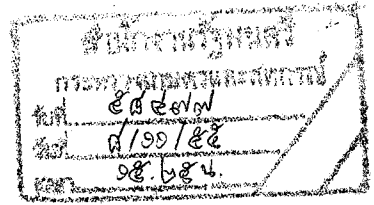 สำนักงานรัฐมนตรี
กระทรวงเกษตรและสหกรณ์
รับที่ ๕๘๔๗๗
วันที่ ๘/๑๑/๕๕
เวลา ๑๕.๒๕ น.